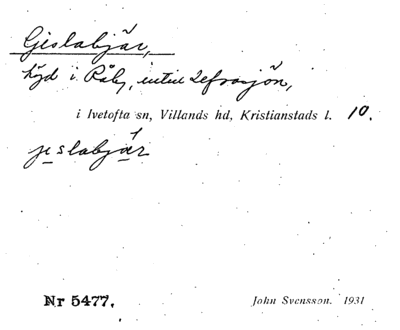 Gislabjär,
höjd i Råby, intill Lefrasjön,
i Ivetofta sn, Villands hd, Kristianstads l. 10.
jislabjär
Nr 5477.
John Svensson. 1931